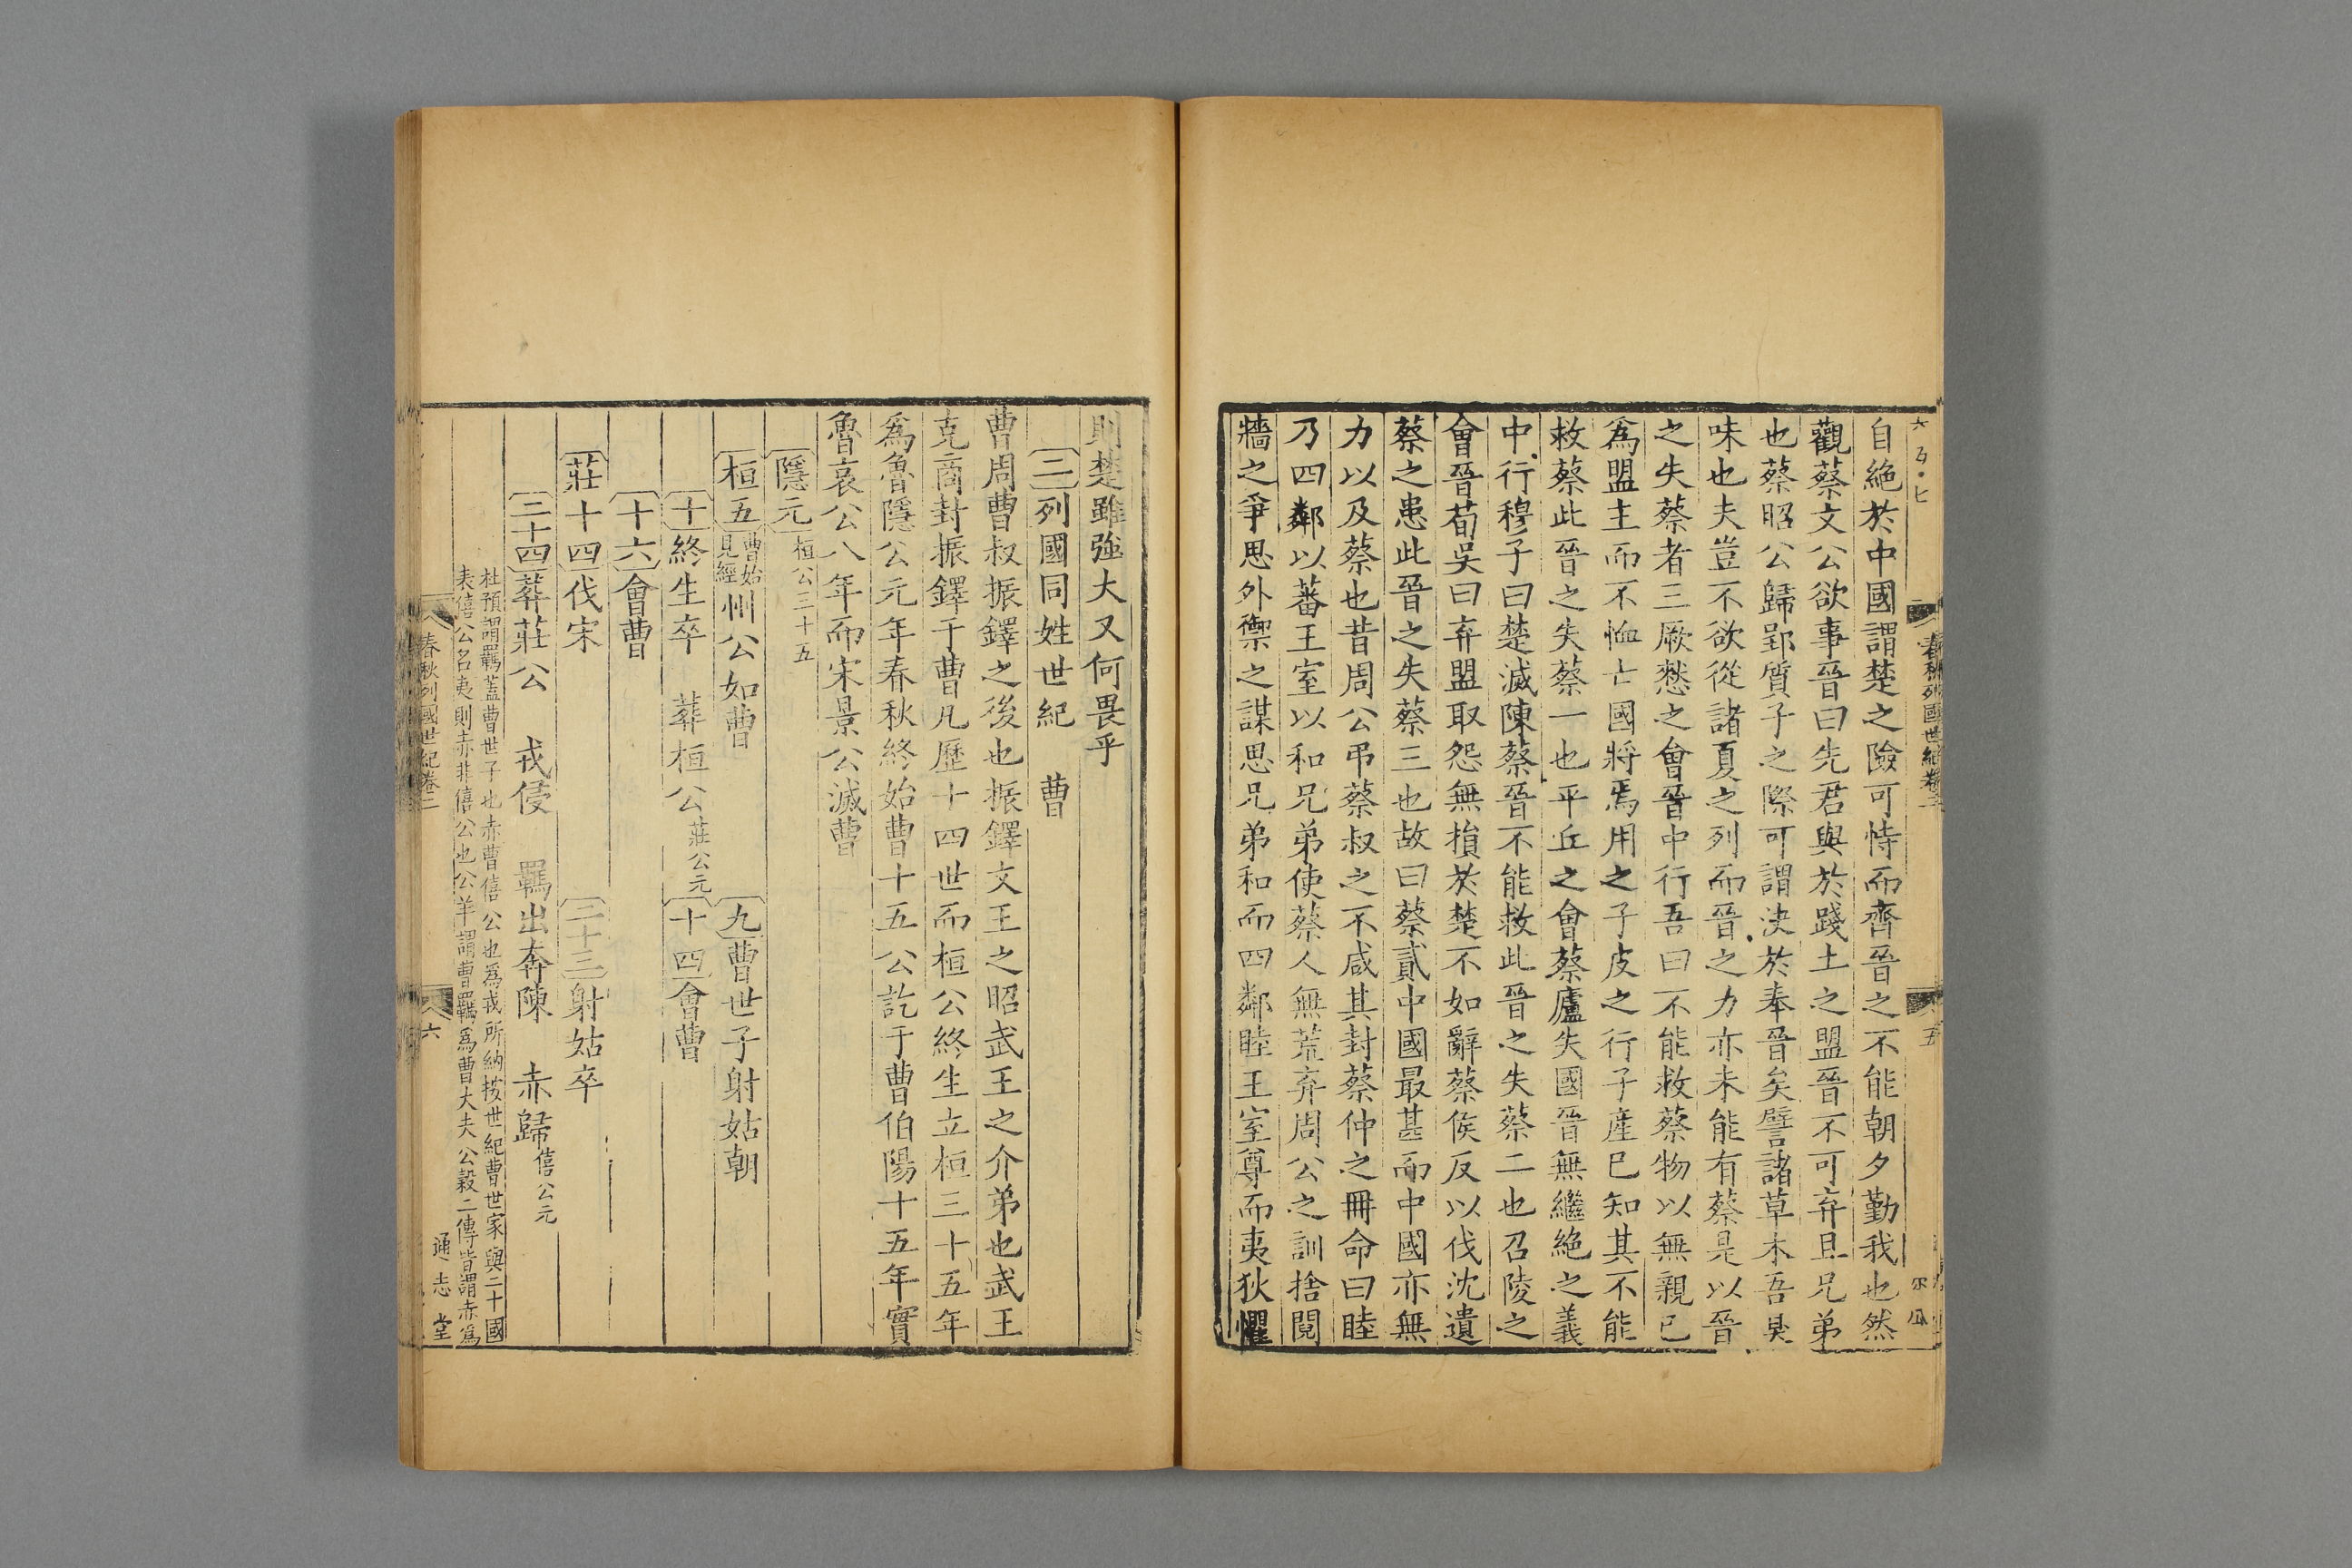 春秋列國世紀卷二
五
自絶於中國謂楚之險可恃而齊晉之不能朝夕勤我也然
觀蔡文公欲事晉曰先君與於踐土之盟晉不可弃且兄弟
也蔡昭公歸郢質子之際可謂決於奉晉矣譬諸草木吾臭
味也夫豈不欲從諸夏之列而晉之力亦未能有蔡是以晉
之失蔡者三厥憖之會晉中行吾曰不能救蔡物以無親已
爲盟主而不恤亡國將焉用之子皮之行子產已知其不能
救蔡此晉之失蔡一也平丘之會蔡廬失國晉無繼絶之義
中行穆子曰楚滅陳蔡晉不能救此晉之失蔡二也召陵之
會晉荀吳曰弃盟取怨無損於楚不如辭蔡侯反以伐沈遺
蔡之患此晉之失蔡三也故曰蔡貳中國最甚而中國亦無
力以及蔡也昔周公弔蔡叔之不咸其封蔡仲之冊命曰睦
乃四鄰以蕃王室以和兄弟使蔡人無荒弃周公之訓捨鬩
牆之爭思外禦之謀思兄弟和而四鄰睦王室尊而夷狄懼
則楚雖強大又何畏乎
三列國同姓世紀 曹
曹周曹叔振鐸之後也振鐸文王之昭武王之介弟也武王
克商封振鐸于曹凡歷十四世而桓公終生立桓三十五年
爲魯隱公元年春秋終始曹十五公訖于曹伯陽十五年實
魯哀公八年而宋景公滅曹
隱元桓公三十五
桓五曹始見經州公如曹 九曹世子射姑朝
十終生卒 葬桓公莊公元 十四會曹
十六會曹
莊十四伐宋 二十三射姑卒
二十四葬莊公 戎侵 羈出奔陳 赤歸僖公元
杜預謂羈蓋曹世子也赤曹僖公也爲戎所納按世紀曹世家與二十國
表僖公名夷則赤非僖公也公羊謂曹羈爲曹大夫公穀二傳皆謂赤爲
春秋列國世紀卷二
六
通志堂